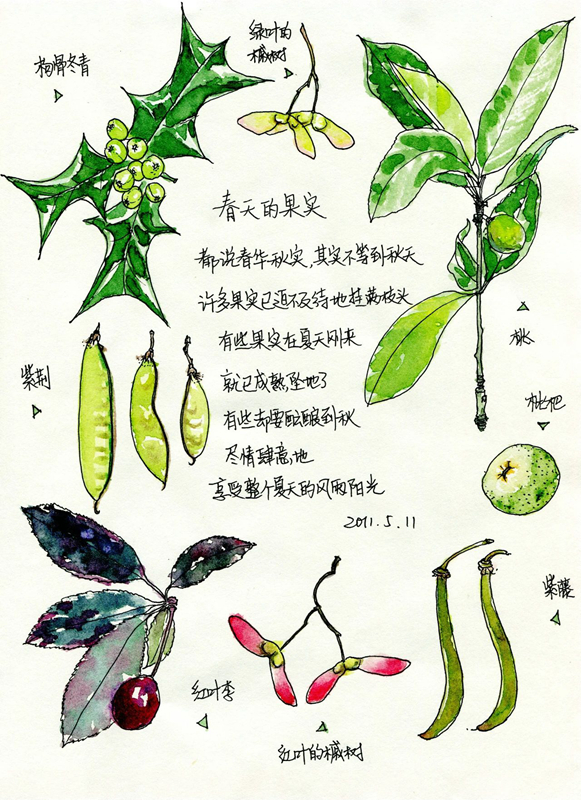 枸骨冬青
绿叶的
槭树
春天的果实
都说春华秋实,其实不等到秋天
许多果实已迫不及待地挂满枝头
有些果实在夏天刚来
就已成熟坠地了
有些却要酝酿到秋
尽情肆意地
享受整个夏天的风雨阳光
2011.5.11
紫荆
桃
枇杷
紫藤
红叶李
红叶的槭树